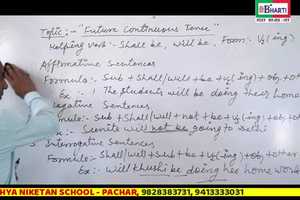 BHARTI
Topic :- "Future Continuous Tense"
Helping Verb :- Shall be, will be, Form:- V₁(ing)
Affirmative Sentences
Formula:- Sub + Shall/well + be + V₁(ing) + ob, + other
Ex:- 1 The students will be doing their home
egative Sentences
rmula:- Sub + Shall/well + not + be + V₁(ing) + ob, + other
Ex:- Sunita will not be going to delhi
3. Interrogative Sentences
Formula:- Shall/well + Sub + be + V₁(ing) + ob, other
Ex:- Will khushi be doing her home work
HYA NIKETAN SCHOOL - PACHAR, 9828383731, 9413333031